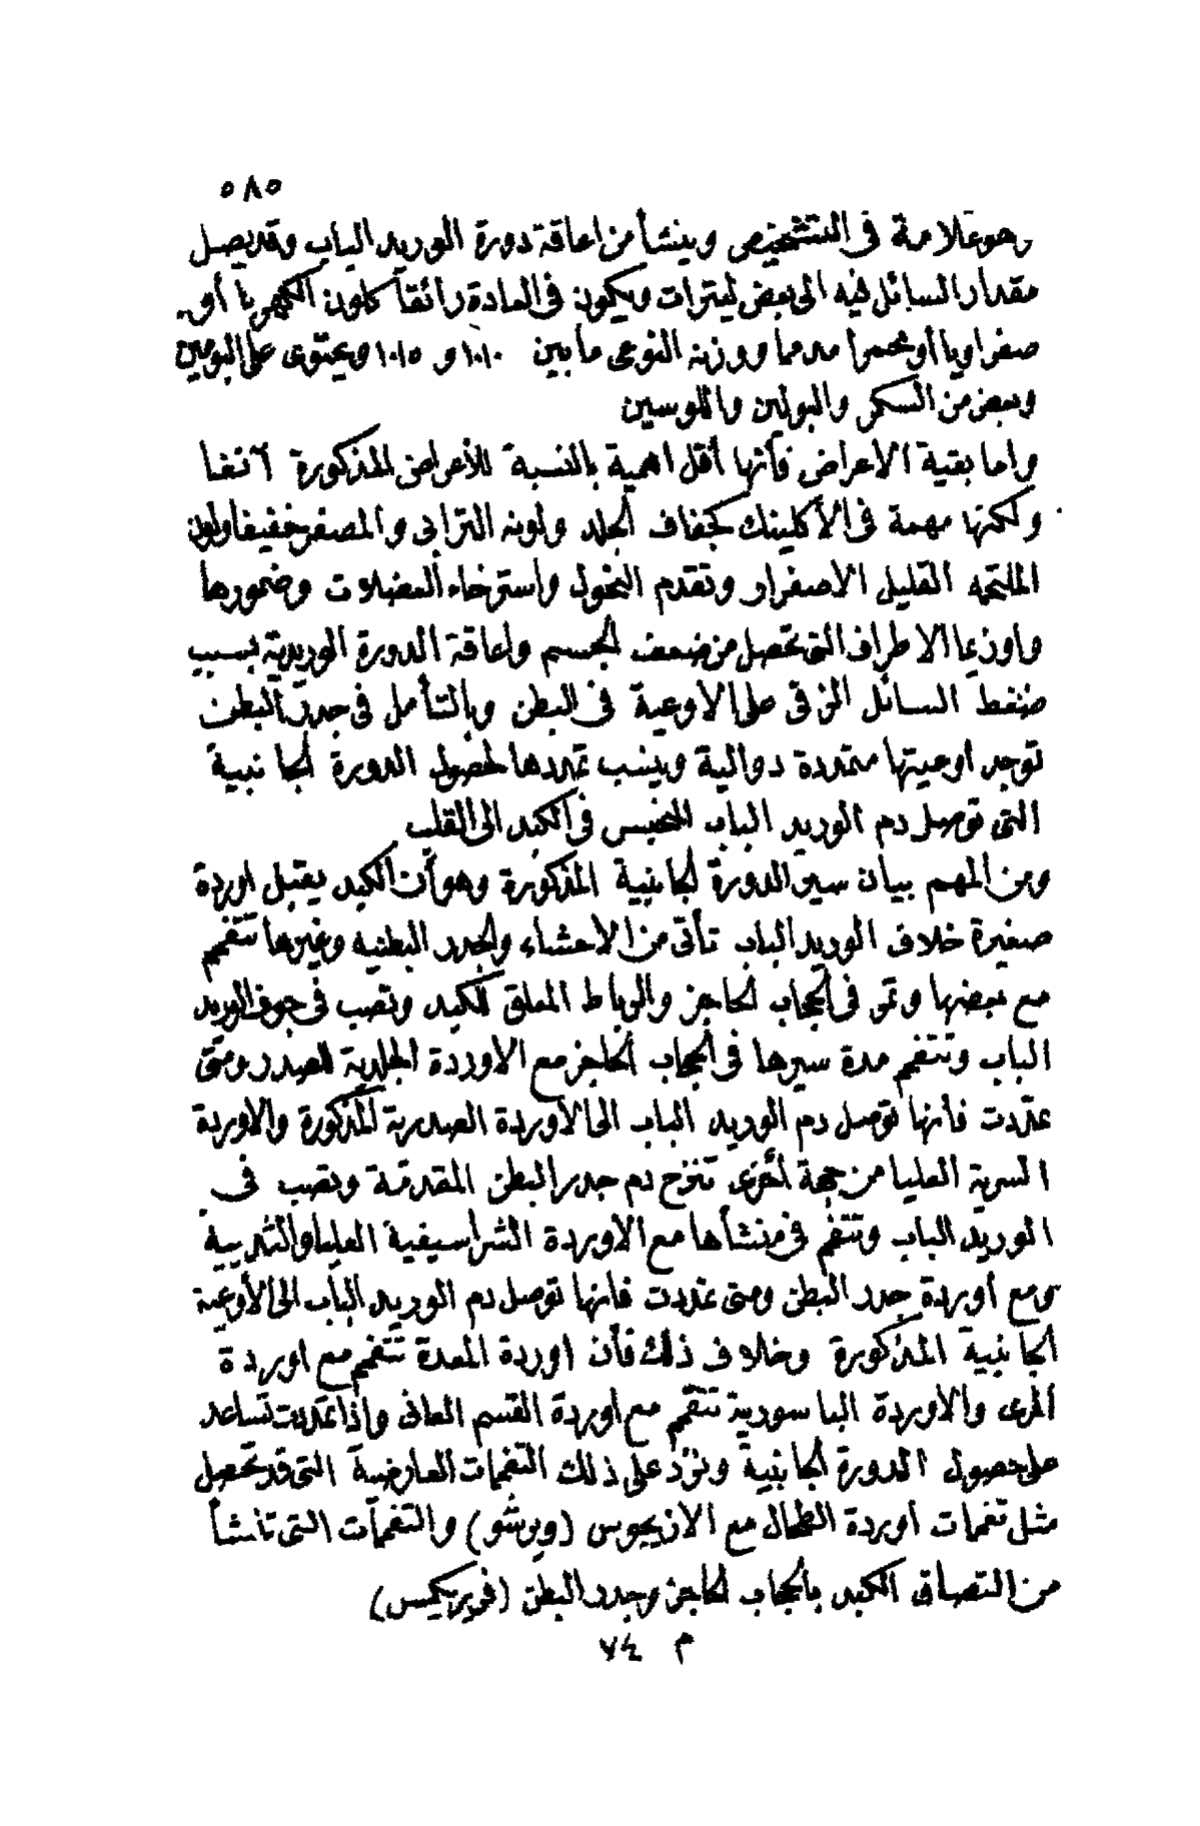 ٥٨٥
وهو علامة فى التشخيص وينشأ من اعاقة دورة الوريد الباب وقد يصل
مقدار السائل فيه الى بعض ليترات ويكون فى العادة رائقاً كلون الكهربا أو
صفراويا أو محمرا مدمما ووزنه النوعى ما بين ١٠١٠ و ١٠١٥ ويحتوى على البومين
وبعض من السكر والبولين واللوسين
واما بقية الاعراض فأنها أقل اهمية بالنسبة للأعراض المذكورة آنفا
ولكنها مهمة فى الأكلينك كجفاف الجلد ولونه الترابى والمصفر خفيفا ولون
الملتحمه القليل الاصفرار وتقدم النحول واسترخاء العضلات وضمورها
واوذيما الاطراف التى تحصل من ضعف الجسم واعاقة الدورة الوريدية بسبب
ضغط السائل الزقى على الاوعية فى البطن وبالتأمل فى جدر البطن
توجد اوعيتها متمددة دوالية وينسب تمددها لحصول الدورة الجانبية
التى توصل دم الوريد الباب المنحبس فى الكبد الى القلب
ومن المهم بيان سير الدورة الجانبية المذكورة وهو أن الكبد يقبل اوردة
صغيرة خلاف الوريد الباب تأتى من الاحشاء والجدر البطنيه وغيرها تتفمم
مع بعضها وتمر فى الحجاب الحاجز والرباط المعلق للكبد وتصب فى جوف الوريد
الباب وتتفمم مدة سيرها فى الحجاب الحاجز مع الاوردة الجلدية للصدر ومتى
تمددت فأنها توصل دم الوريد الباب الى الاوردة الصدرية المذكورة والاوردة
السرية العليا من جهة أخرى تنزح دم جدر البطن المقدمة وتصب فى
الوريد الباب وتتفمم فى منشأها مع الاوردة الشراسيفية العليا والثديية
ومع أوردة جدر البطن ومتى تمددت فأنها توصل دم الوريد الباب الى الأوعية
الجانبية المذكورة وخلاف ذلك فأن اوردة المعدة تتفمم مع اوردة
المرى والاوردة الباسورية تتفمم مع اوردة القسم العانى واذا تمددت تساعد
على حصول الدورة الجانبية ونزد على ذلك التفممات العارضية التى قد تحصل
مثل تفممات اوردة الطحال مع الازيجوس (ويرشو) والتفممات التى تنشأ
من التصاق الكبد بالحجاب الحاجز وجدر البطن (فريريكس)
م ٧٤